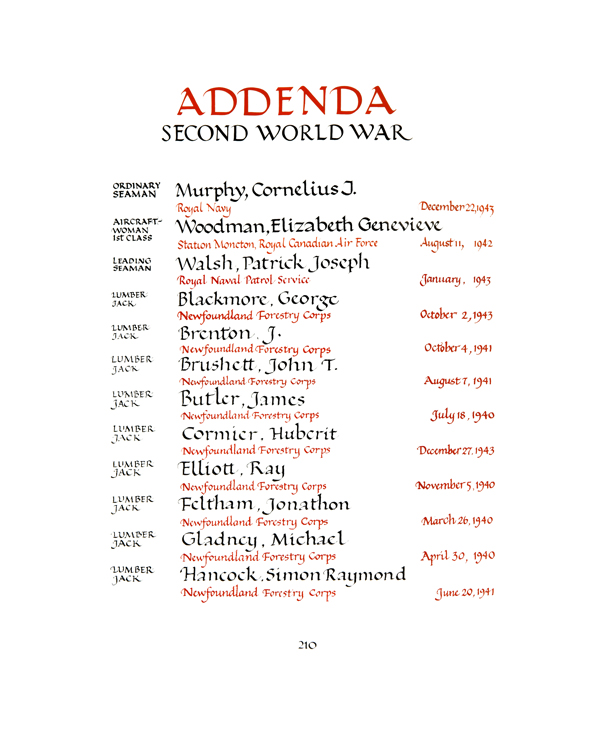 ADDENDA
SECOND WORLD WAR
ORDINARY SEAMAN Murphy, Cornelius J.
Royal Navy December 22, 1943
AIRCRAFT-WOMAN 1ST CLASS Woodman, Elizabeth Genevieve
Station Moncton, Royal Canadian Air Force August 11, 1942
LEADING SEAMAN Walsh, Patrick Joseph
Royal Naval Patrol Service January, 1943
LUMBER JACK Blackmore, George
Newfoundland Forestry Corps October 2, 1943
LUMBER JACK Brenton, J.
Newfoundland Forestry Corps October 4, 1941
LUMBER JACK Brushett, John T.
Newfoundland Forestry Corps August 7, 1941
LUMBER JACK Butler, James
Newfoundland Forestry Corps July 18, 1940
LUMBER JACK Cormier, Hubert
Newfoundland Forestry Corps December 27, 1943
LUMBER JACK Elliott, Ray
Newfoundland Forestry Corps November 5, 1940
LUMBER JACK Feltham, Jonathon
Newfoundland Forestry Corps March 26, 1940
LUMBER JACK Gladney, Michael
Newfoundland Forestry Corps April 30, 1940
LUMBER JACK Hancock, Simon Raymond
Newfoundland Forestry Corps June 20, 1941
210